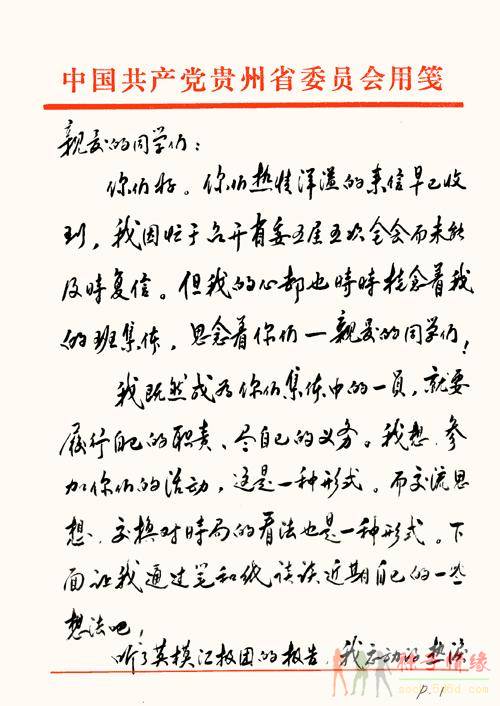 中国共产党贵州省委员会用笺
亲爱的同学们:
你们好。你们热情洋溢的来信早已收
到,我因忙于召开省委五届五次全会而未能
及时复信。但我的心却也時時挂念着我
的班集体,思念着你们—亲爱的同学们!
我既然成为你们集体中的一员,就要
履行自己的职责、尽自己的义务。我想,参
加你们的活动,这是一种形式。而交流思
想、交换对時局的看法也是一种形式。下
面让我通过笔和纸谈谈近期自己的一些
想法吧!
听了英模汇报团的报告,我感动得热泪
P.1